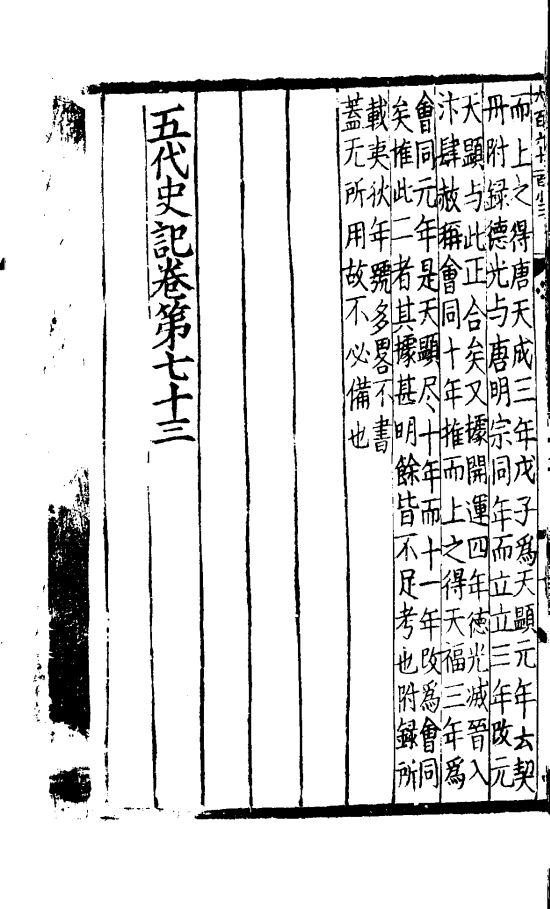 而上之得唐天成三年戊子爲天顯元年去契
丹附録德光与唐明宗同年而立立三年改元
天顯与此正合矣又據開運四年德光滅晉入
汴肆赦稱會同十年推而上之得天福三年爲
會同元年是天顯尽十年而十一年改爲會同
矣惟此二者其據甚明餘皆不足考也附録所
載夷狄年號多畧不書
蓋无所用故不必備也
五代史記卷第七十三